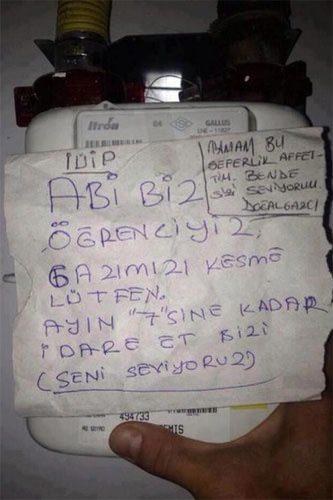 Itron
G4
GALLUS
İDİP
ABİ BİZ
ÖĞRENCİYİZ,
GAZIMIZI KESME
LÜTFEN.
AYIN "7"SİNE KADAR
İDARE ET BİZİ
(SENİ SEVİYORUZ)
TAMAM BU
SEFERLİK AFFET-
TİM. BENDE
SİZİ SEVİYORUM.
DOĞALGAZCI
494733